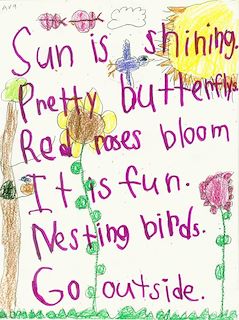 AVA
Sun is shining.
Pretty butterflys.
Red roses bloom
It is fun.
Nesting birds.
Go outside.